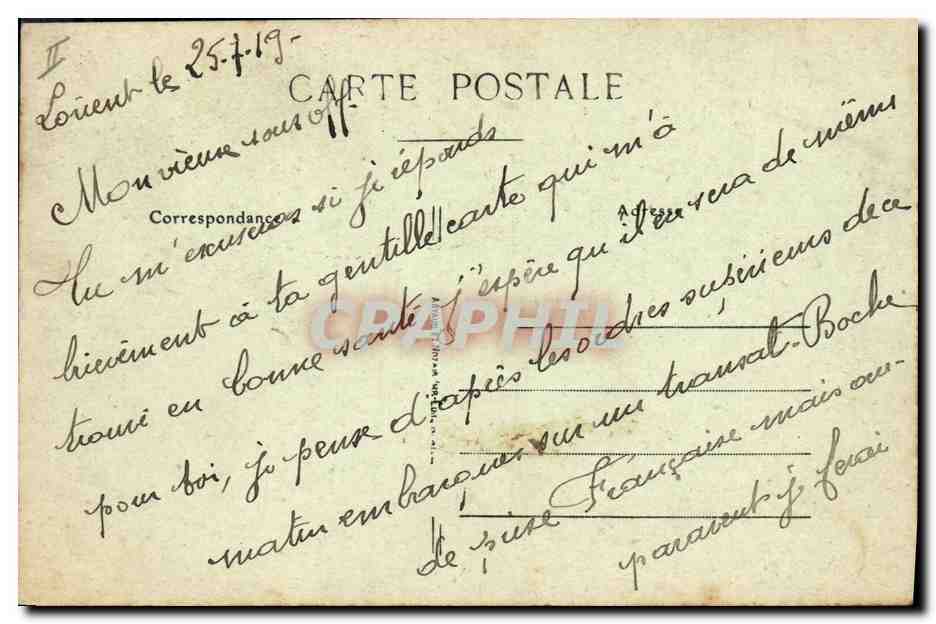 II
Lorient le 25-7-19-
CARTE POSTALE
Mon vieux sous off.
Correspondance
Adresse
Tu m'excuseras si je réponds
brièvement à ta gentille carte qui m'à
trouvé en bonne santé, j'espère qu'il en sera de même
pour toi, je pense d'après les ordres supérieurs de ce
matin embarquer sur un transat-Boche
de prise Française mais au-
paravent je ferai
CPAPHIL